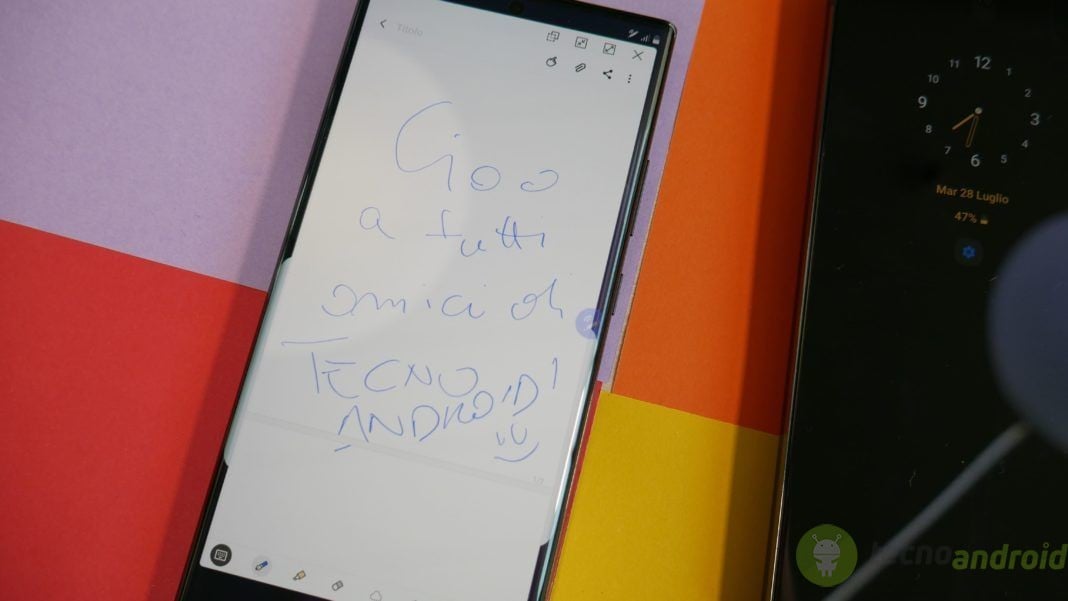 Titolo
Ciao
a tutti
amici di
TECNO
ANDROID!
1/1
12
11
1
10
2
9
3
8
4
7
5
6
Mar 28 Luglio
47%
tecnoandroid